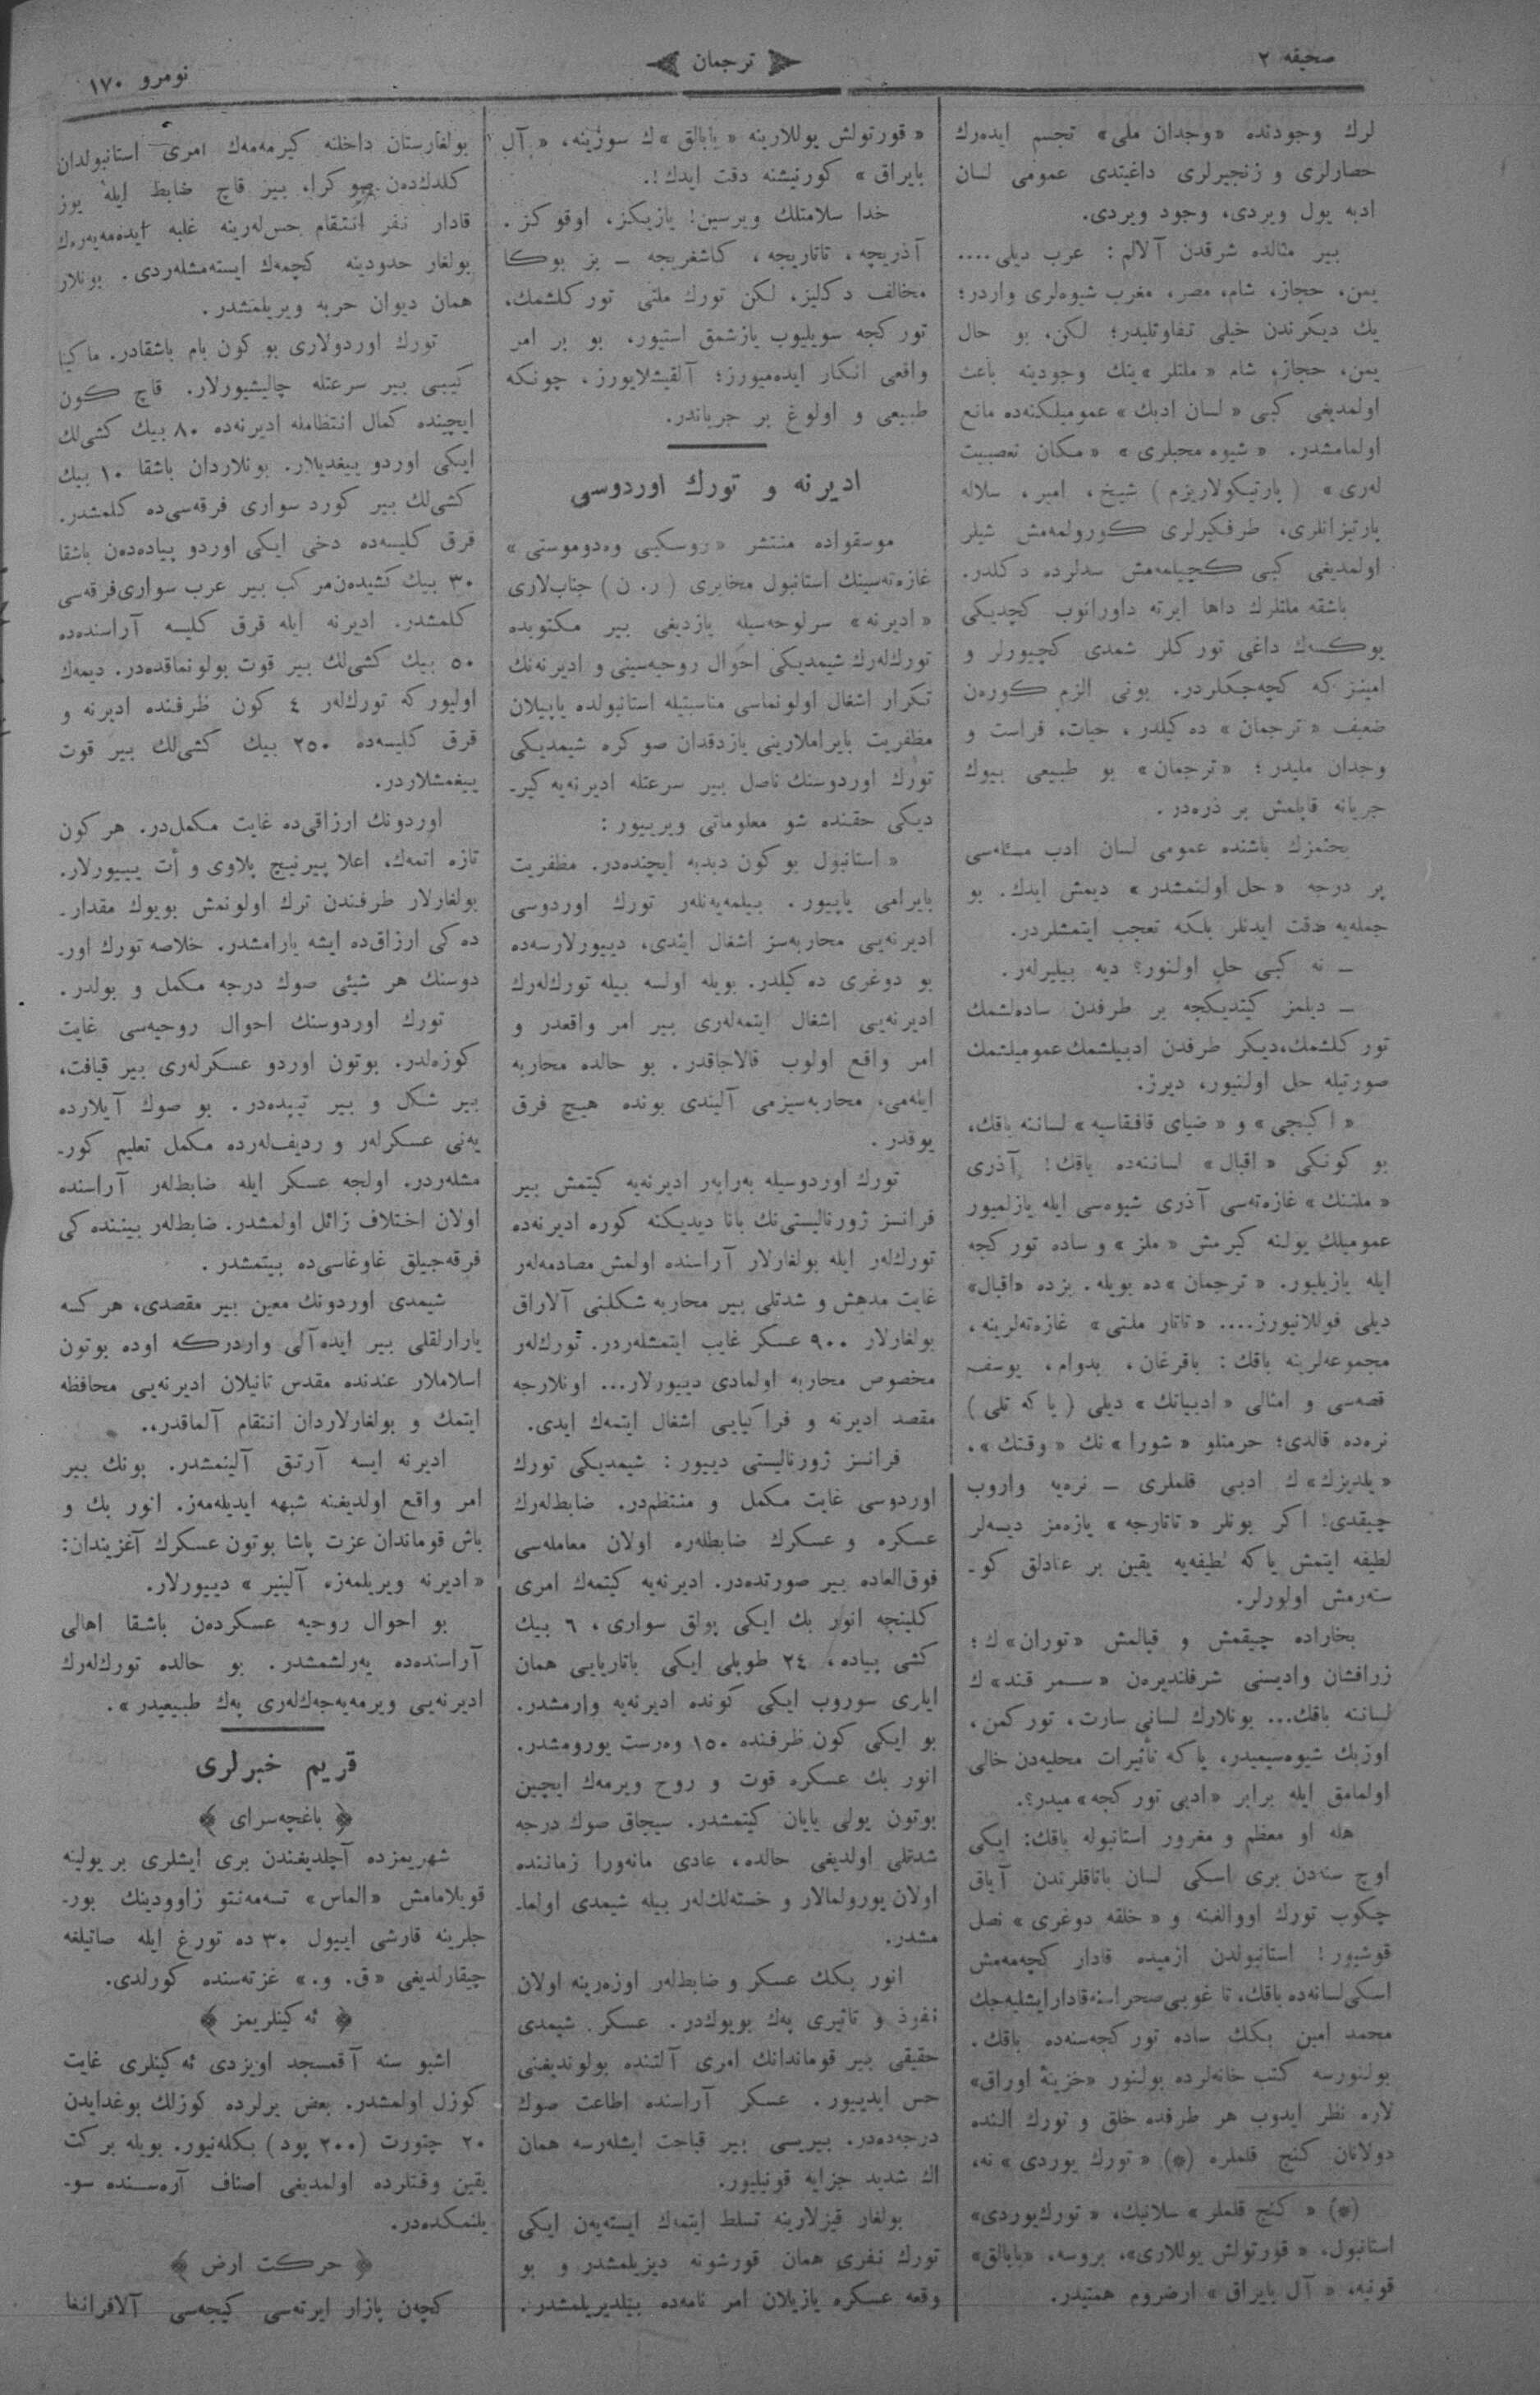 صحیفه ٢
ترجمان
نومرو ١٧٠
لرك وجودنده «وجدان ملی» تجسم ایدەرك
حصارلری و زنجیرلری داغیتدی عمومی لسان
ادبه یول ویردی، وجود ویردی.
بیر مثالده شرقدن آلالم: عرب دیلی....
یمن، حجاز، شام، مصر، مغرب شیوەلری واردر؛
یك دیكرندن خیلی تفاوتلیدر؛ لكن، بو حال
یمن، حجاز، شام «ملتلر»ینك وجودینه باعث
اولمدیغی كبی «لسان ادبك» عمومیلكنەدە مانع
اولمامشدر. «شیوە محبلری» «مكان تعصبیت
لەری» (پارتیكولاریزم) شیخ، امیر، سلاله
پارتیزانلری، طرفكیرلری كورولمەمش شیلر
اولمدیغی كبی كچیلمەمش سدلردە دكلدر.
باشقه ملتلرك داها ایرته داورانوب كچدیكی
یوكسك داغی توركلر شمدی كچیورلر و
امینز كه كچەجكلردر. بونی الزم كورەن
ضعیف «ترجمان» دەكیلدر، حیات، فراست و
وجدان ملیدر؛ «ترجمان» بو طبیعی بیوك
جریانه قاپلمش بر ذرەدر.
بحثمزك باشنده عمومی لسان ادب مسئلەسی
بر درجه «حل اولنمشدر» دیمش ایدك. بو
جملەیه دقت ایدنلر بلكه تعجب ایتمشلردر.
ــ نه كبی حل اولنور؟ دیه بیلیرلەر.
ــ دیلمز كیتدیكجه بر طرفدن سادەلشمك
توركلشمك، دیكر طرفدن ادبیلشمك عمومیلشمك
صورتیله حل اولنیور، دیرز.
«اكینجی» و «ضیای قافقاسیه» لساننه باقك،
بو كونكی «اقبال» لساننەده باقك! آذری
«ملتنك» غازەتەسی آذری شیوەسی ایله یازلمیور
عمومیلك یولنه كیرمش «ملز» و ساده توركجه
ایله یازیلیور. «ترجمان»ده بویله. بزده «اقبال»
دیلی قوللانیورز.... «تاتار ملتی» غازەتەلرینه،
مجموعەلرینه باقك: باقرغان، بدوام، یوسف
قصەسی و امثالی «ادبیاتك» دیلی (یاكه تلی)
نرەده قالدی؛ حرمتلو «شورا»نك «وقتك»،
«یلدیزك»ك ادبی قلملری ــ نرەیه واروب
چیقدی! اكر بونلر «تاتارجه» یازەمز دیسەلر
لطیفه ایتمش یاكه لطیفەیه یقین بر عادلق كو-
ستەرمش اولورلر.
بخاراده چیقمش و قپالمش «توران»ك؛
زرافشان وادیسنی شرفلندیرەن «سمرقند»ك
لساننه باقك... بونلارك لسانی سارت، توركمن،
اوزبك شیوەسیمیدر، یاكه تأثیرات محلیەدن خالی
اولمامق ایله برابر «ادبی توركجه»میدر؟.
هله او معظم و مغرور استانبوله باقك: ایكی
اوچ سنەدن بری اسكی لسان باتاقلرندن آیاق
چكوب تورك اووالغنه و «خلقه دوغری» نصل
قوشیور! استانبولدن ازمیده قادار كچەمەمش
اسكی لسانەده باقك، تا غوبی صحراسنه قادار ایشلیەجك
محمد امین بكك ساده توركجەسنەده باقك.
بولنورسه كتب خانەلردە بولنور «خزینهٔ اوراق»
لارە نظر ایدوب هر طرفده خلق و تورك النده
دولانان كنج قلملره (*) «تورك یوردی»نه،
(*) «كنج قلملر» سلانیك، «تورك یوردی»
استانبول، «قورتولش یوللاری»، بروسه، «بابالق»
قونیه، «آل بایراق» ارضروم همتیدر.
«قورتولش یوللارینه «بابالق»ك سوزینه، «آل
بایراق» كورنیشنه دقت ایدك!.
خدا سلامتلك ویرسین! یازیكز، اوقوكز.
آذریچه، تاتاریجه، كاشغریجه ــ بز بوكا
مخالف دكلیز، لكن تورك ملتی توركلشمك،
توركجه سویلیوب یازشمق استیور، بو بر امر
واقعی انكار ایدەمیورز؛ آلقیشلایورز، چونكه
طبیعی و اولوغ بر جریاندر.
ادیرنه و تورك اوردوسی
موسقواده منتشر «روسكیی وەدوموستی»
غازەتەسینك استانبول مخابری (ر. ن) جنابلاری
«ادیرنه» سرلوحەسیله یازدیغی بیر مكتوبده
توركلەرك شیمدیكی احوال روحیەسینی و ادیرنەنك
تكرار اشغال اولونماسی مناسبتیله استانبولده یاپیلان
مظفریت بایراملارینی یازدقدان صوكره شیمدیكی
تورك اوردوسنك ناصل بیر سرعتله ادیرنەیه كیر-
دیكی حقنده شو معلوماتی ویرییور:
«استانبول بو كون دبدبه ایچندەدر. مظفریت
بایرامی یاپیور. بیلمەیەنلەر تورك اوردوسی
ادیرنەیی محاربەسز اشغال ایتدی، دییورلارسەده
بو دوغری دەكیلدر. بویله اولسه بیله توركلەرك
ادیرنەیی اشغال ایتمەلەری بیر امر واقعدر و
امر واقع اولوب قالاجاقدر. بو حالده محاربه
ایلەمی، محاربەسیزمی آلیندی بونده هیچ فرق
یوقدر.
تورك اوردوسیله بەرابەر ادیرنەیه كیتمش بیر
فرانسز ژورنالیستی‌نك بانا دیدیكنه كوره ادیرنەده
توركلەر ایله بولغارلار آراسنده اولمش مصادمەلەر
غایت مدهش و شدتلی بیر محاربه شكلنی آلاراق
بولغارلار ٩٠٠ عسكر غایب ایتمشلەردر. توركلەر
مخصوص محاربه اولمادی دییورلار... اونلارجه
مقصد ادیرنه و فراكیایی اشغال ایتمەك ایدی.
فرانسز ژورنالیستی دییور: شیمدیكی تورك
اوردوسی غایت مكمل و منتظم‌در. ضابطلەرك
عسكره و عسكرك ضابطلەرە اولان معاملەسی
فوق‌العاده بیر صورتدەدر. ادیرنەیه كیتمەك امری
كلینجه انور بك ایكی پولق سواری، ٦ بیك
كشی پیاده، ٢٤ طوپلی ایكی باتاریایی همان
ایلری سوروب ایكی كونده ادیرنەیه وارمشدر.
بو ایكی كون ظرفنده ١٥٠ وەرست یورومشدر.
انور بك عسكره قوت و روح ویرمەك ایچین
بوتون یولی یایان كیتمشدر. سیجاق صوك درجه
شدتلی اولدیغی حالده، عادی مانەورا زماننده
اولان یورولمالار و خستەلك‌لەر بیله شیمدی اولما-
مشدر.
انور بكك عسكر و ضابط‌لەر اوزەرینه اولان
نفوذ و تاثیری پەك بویوك‌در. عسكر شیمدی
حقیقی بیر قوماندانك امری آلتنده بولوندیغینی
حس ایدییور. عسكر آراسنده اطاعت صوك
درجەدەدر. بیریسی بیر قباحت ایشلەرسه همان
اك شدید جزایه قونیلیور.
بولغار قیزلارینه تسلط ایتمەك ایستەیەن ایكی
تورك نفری همان قورشونه دیزیلمشدر و بو
وقعه عسكره یازیلان امر نامەده بیلدیریلمشدر.
بولغارستان داخلنه كیرمەمەك امری استانبولدان
كلدكدەن صوكرا، بیز قاچ ضابط ایله یوز
قادار نفر انتقام حس‌لەرینه غلبه ایدەمەیەرەك
بولغار حدودینه كچمەك ایستەمشلەردی. بونلار
همان دیوان حربه ویریلمشدر.
تورك اوردولاری بو كون بام باشقادر. ماكینا
كیبی بیر سرعتله چالیشیورلار. قاچ كون
ایچنده كمال انتظامله ادیرنەده ٨٠ بیك كشی‌لك
ایكی اوردو ییغدیلار. بونلاردان باشقا ١٠ بیك
كشی‌لك بیر كورد سواری فرقەسی‌ده كلمشدر.
قرق كلیسەده دخی ایكی اوردو پیادەدەن باشقا
٣٠ بیك كشیدەن مركب بیر عرب سواری فرقەسی
كلمشدر. ادیرنه ایله قرق كلیسه آراسندەده
٥٠ بیك كشی‌لك بیر قوت بولونماقدەدر. دیمەك
اولیور كه توركلەر ٤ كون ظرفنده ادیرنه و
قرق كلیسەده ٢٥٠ بیك كشی‌لك بیر قوت
ییغمشلاردر.
اوردونك ارزاقی‌ده غایت مكمل‌در. هركون
تازه اتمەك، اعلا پیرنیچ پلاوی و أت یییورلار.
بولغارلار طرفندن ترك اولونمش بویوك مقدار-
ده‌كی ارزاق‌ده ایشه یارامشدر. خلاصه تورك اور-
دوسنك هر شیئی صوك درجه مكمل و بولدر.
تورك اوردوسنك احوال روحیەسی غایت
كوزەلدر. بوتون اوردو عسكرلەری بیر قیافت،
بیر شكل و بیر تیپدەدر. بو صوك آیلارده
یەنی عسكرلەر و ردیف‌لەرده مكمل تعلیم كور-
مشلەردر. اولجه عسكر ایله ضابط‌لەر آراسنده
اولان اختلاف زائل اولمشدر. ضابط‌لەر بیننده‌كی
فرقەجیلق غاوغاسی‌ده بیتمشدر.
شیمدی اوردونك معین بیر مقصدی، هركسه
یارارلقلی بیر ایدەآلی واردركه اوده بوتون
اسلاملار عندنده مقدس تانیلان ادیرنەیی محافظه
ایتمك و بولغارلاردان انتقام آلماقدر..
ادیرنه ایسه آرتق آلینمشدر. بونك بیر
امر واقع اولدیغینه شبهه ایدیلەمەز. انور بك و
باش قوماندان عزت پاشا بوتون عسكرك آغزیندان:
«ادیرنه ویریلمەز، آلینیر» دییورلار.
بو احوال روحیه عسكردەن باشقا اهالی
آراسندەده یەرلشمشدر. بو حالده توركلەرك
ادیرنەیی ویرمەیەجەكلەری پەك طبیعیدر».
قریم خبرلری
﴿ باغچەسرای ﴾
شهریمزده آچلدیغندن بری ایشلری بر یولینه
قویلامامش «الماس» تسەمەنتو زاوودینك بور-
جلرینه قارشی اییول ٣٠ ده تورغ ایله صاتیلغه
چیقارلدیغی «ق. و.» غزتەسنده كورلدی.
﴿ ئەكینلریمز ﴾
اشبو سنه آقمسجد اویزدی ئەكینلری غایت
كوزل اولمشدر. بعض یرلرده كوزلك بوغدایدن
٢٠ چتورت (٢٠٠ پود) بكلەنیور. بویله بركت
یقین وقتلرده اولمدیغی اصناف آرەسنده سو-
یلنمكدەدر.
﴿ حركت ارض ﴾
كچەن پازار ایرتەسی كیجەسی آلافرانغا